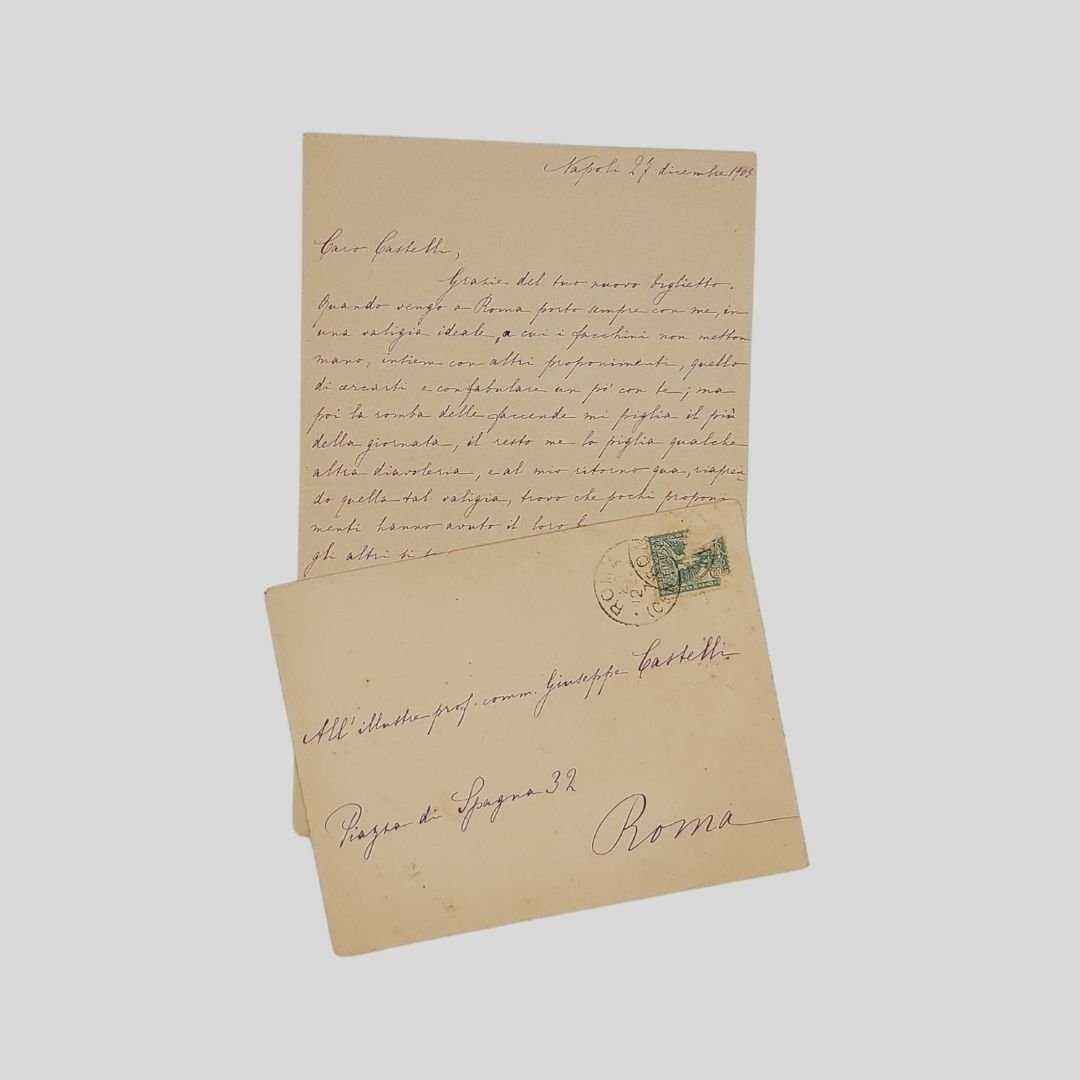 Napoli 27 dicembre 1905
Caro Castelli,
Grazie del tuo nuovo biglietto.
Quando vengo a Roma porto sempre con me, in
una valigia ideale, a cui i facchini non metton
mano, insiem con altri proponimenti, quello
di cercarti e confabulare un pò con te; ma
poi la romba delle faccende mi piglia il più
della giornata, il resto me lo piglia qualche
altra diavoleria, e al mio ritorno qua, riapren-
do quella tal valigia, trovo che pochi proponi
menti hanno avuto il loro
gli altri si
ROMA
All' illustre prof. comm. Giuseppe Castelli
Piazza di Spagna 32
Roma